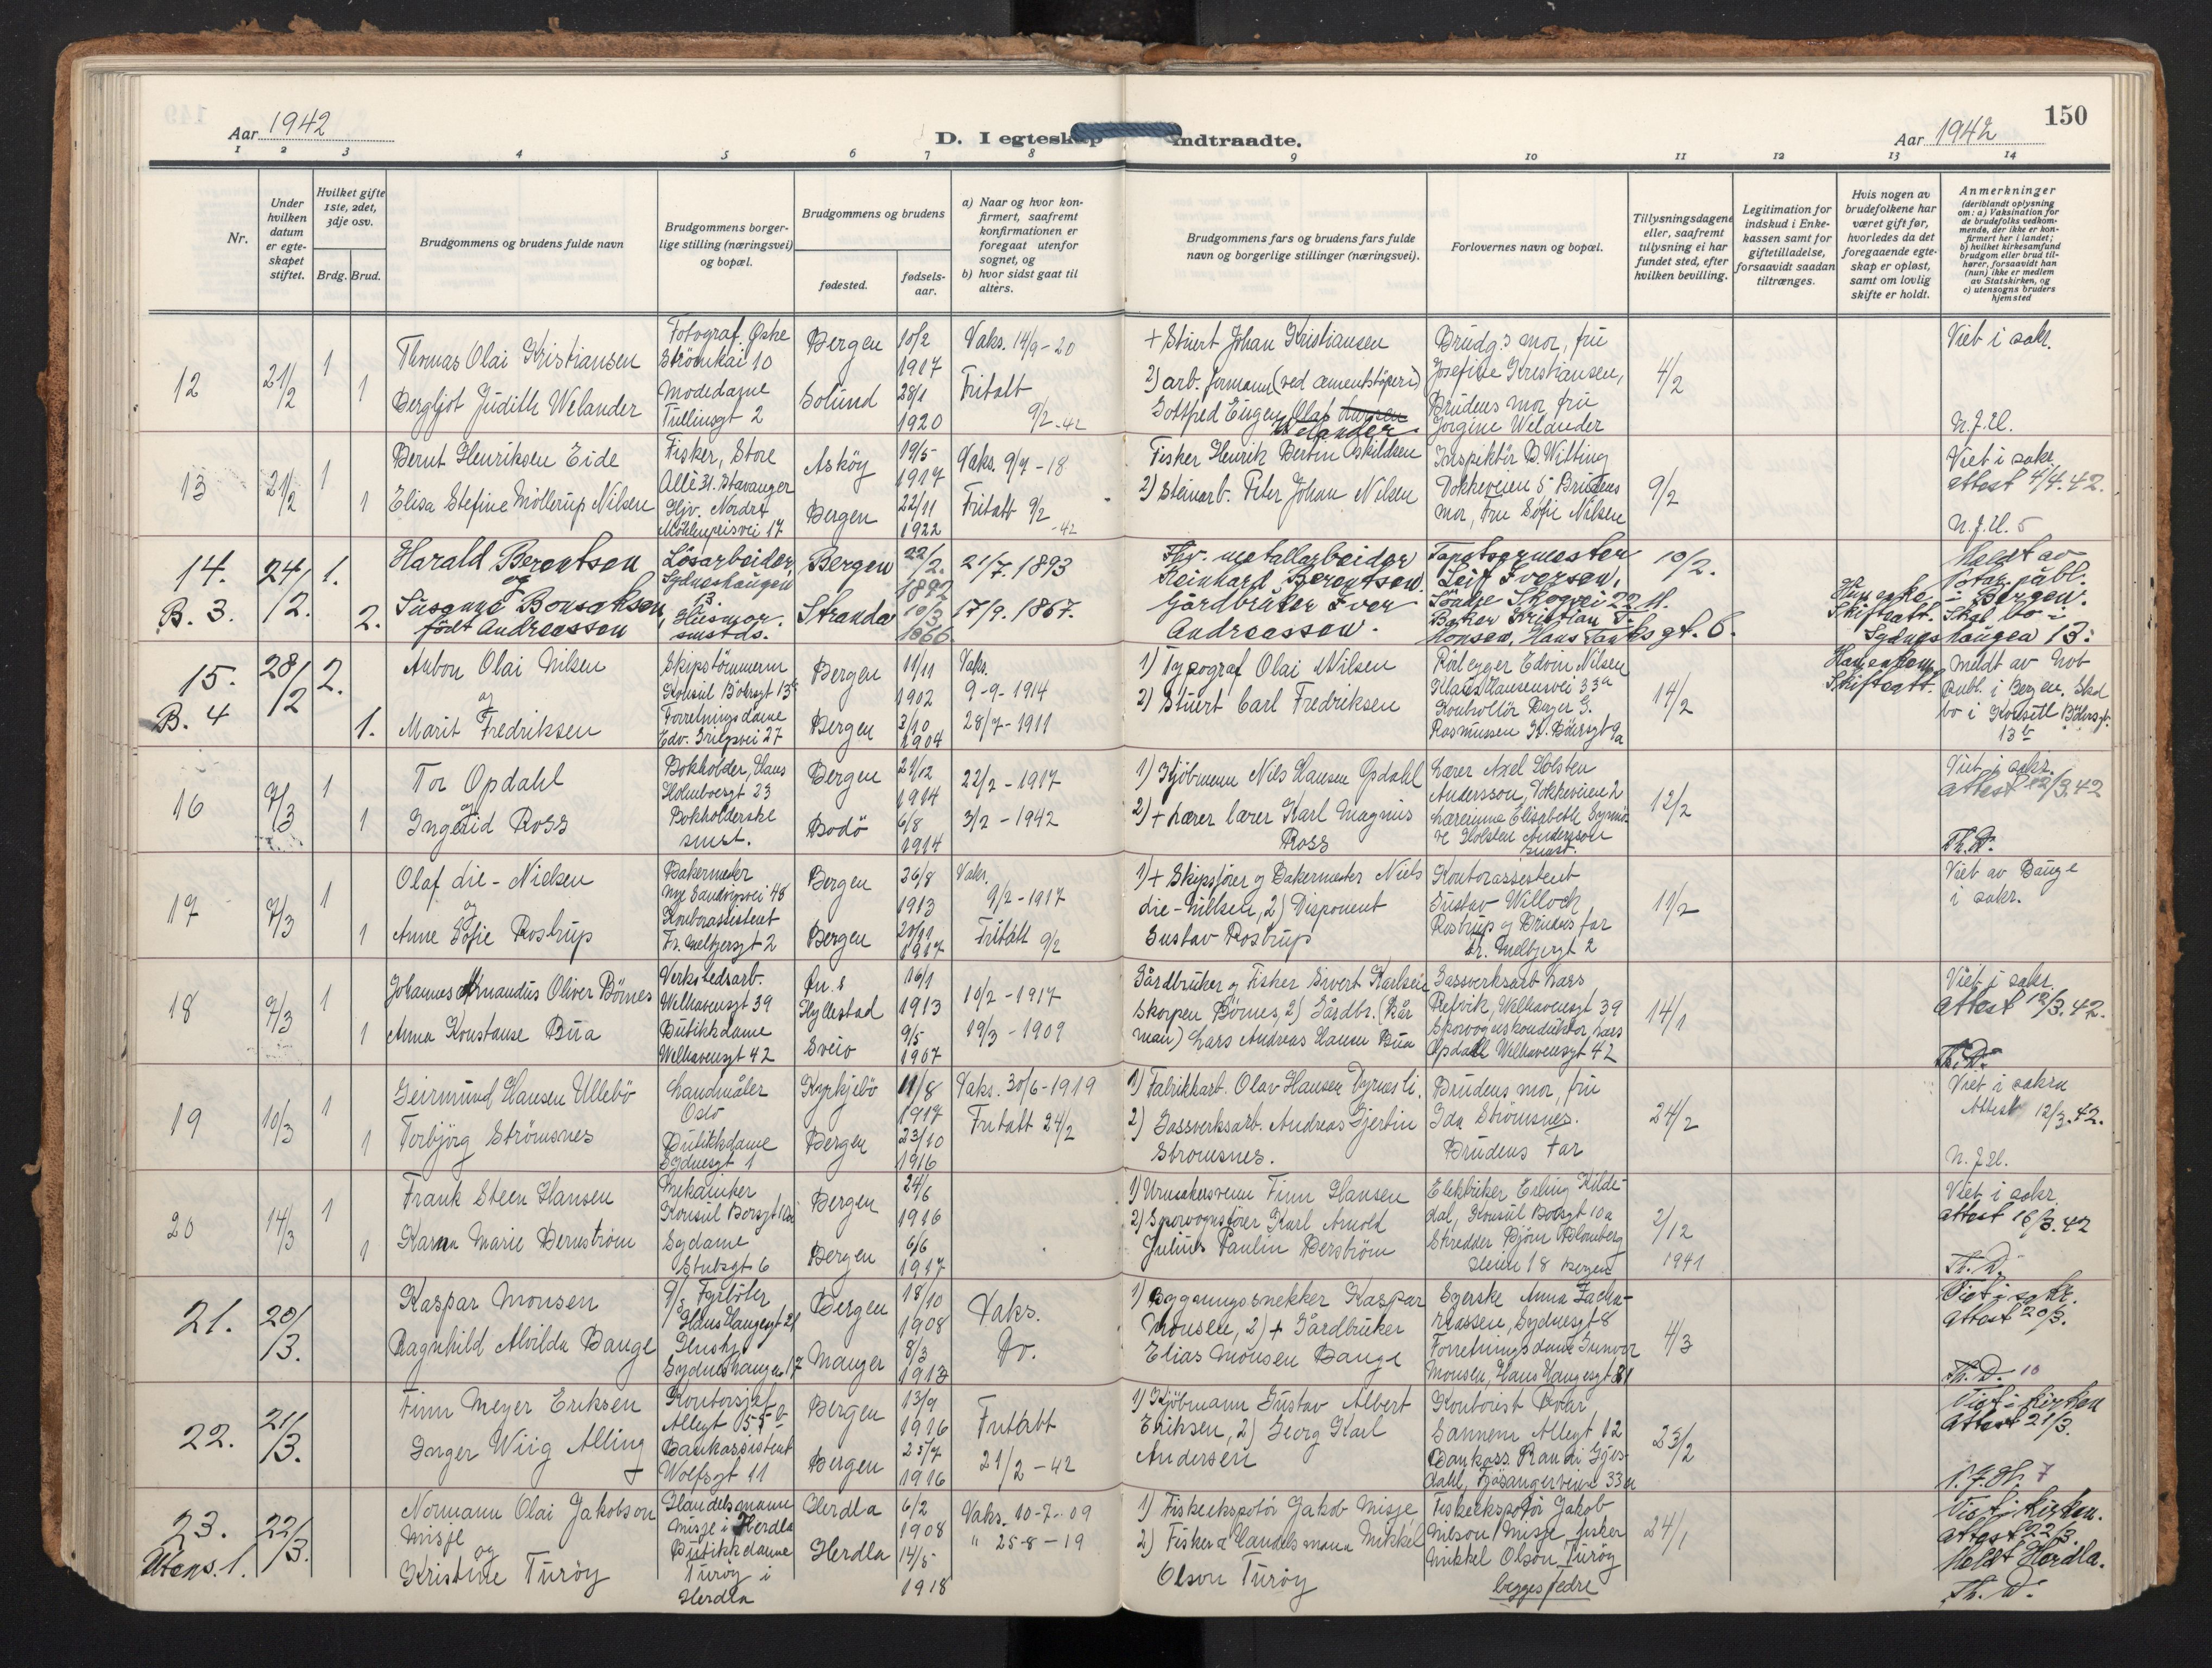 Aar 1942
D. I egteskap indtraadte.
Aar 1942
150
1 2 3 4 5 6 7 8 9 10 11 12 13 14
Nr.
Under hvilken datum er egteskapet stiftet.
Hvilket gifte 1ste, 2det, 3dje osv.
Brdg. Brud.
Brudgommens og brudens fulde navn
Brudgommens borgerlige stilling (næringsvei) og bopæl.
Brudgommens og brudens
fødested.
fødselsaar.
a) Naar og hvor konfirmert, saafremt konfirmationen er foregaat utenfor sognet, og
b) hvor sidst gaat til alters.
Brudgommens fars og brudens fars fulde navn og borgerlige stillinger (næringsvei).
Forlovernes navn og bopæl.
Tillysningsdagene eller, saafremt tillysning ei har fundet sted, efter hvilken bevilling.
Legitimation for indskud i Enkekassen samt for giftetilladelse, forsaavidt saadan tiltrænges.
Hvis nogen av brudefolkene har været gift før, hvorledes da det foregaaende egteskap er opløst, samt om lovlig skifte er holdt.
Anmerkninger
(deriblandt oplysning om: a) Vaksination for de brudefolks vedkommende, der ikke er konfirmert her i landet;
b) hvilket kirkesamfund brudgom eller brud tilhører, forsaavidt han (nun) ikke er medlem av Statskirken, og
c) utensogns bruders hjemsted
12 21/2 1 Thomas Olai Kristiansen Fotograf. Østre Strömkai 10 Bergen 10/2 1917 Vaks. 14/9-20
1 Bergljot Judith Welander Modedame Tullinsgt 2 Solund 28/1 1920 Fritatt 9/2-42
+ Stuert Johan Kristiansen
2) arb. formann (ved sementstöperi)
Gotfred Eugen Olaf Welander
Brudg.s mor, fru
Josefine Kristiansen,
Brudens mor fru
Jorgine Welander
4/2
Viet i sakr.
N.J.H.
13 21/2 1 Bernt Henriksen Eide Fisker, Store Allè 31. Stavanger Asköy 19/5 1917 Vaks. 9/7-18
1 Elisa Stefine Möllerup Nilsen Hjv. Nordre Möhlenprisvei 17 Bergen 22/11 1922 Fritatt 9/2-42
Fisker Henrik Bertin Eskildsen
2) Steinarb. Peter Johan Nilsen
Inspektör B. Witting
Dokkeveien 5 Brudens
mor, Fru Sofie Nilsen
9/2
Viet i sakr
Attest 4/4.42.
N.J.H. 5
14. 24/2. 1. Harald Berentsen Lösarbeider, Sydneshaugen 13. Bergen 22/2. 1892 21/7. 1893
B. 3. 2. og Susanne Bonsaksen, födt Andreassen Husmor. smstds. Stranda 10/3 1866 17/9. 1867.
Fhv. metallarbeider
Reinhard Berentsen.
Gårdbruker Iver
Andreassen.
Tapetsermester
Leif Iversen,
Söndre Skogvei 22 H.
Baker Kristian J.
Monsen, Hans Tanksgt. 6.
10/2.
Hun enke
Skifteatt.
Meldt av
Notar. publ.
i Bergen.
Skal bo i
Sydneshaugen 13.
15. 28/2 2. Anton Olai Nilsen Skipstömmerm Konsul Börsgt 13b Bergen 11/11 1902 Vaks. 9-9-1914
B. 4 1. og Marit Fredriksen Forretningsdame Edv. Griegsvei 27 Bergen 3/10 1904 28/7-1911
1) Typograf Olai Nilsen
2) Stuert Carl Fredriksen
Rörlegger Edvin Nilsen
Klaus Hansensvei 33a
Kontrollör Birger G.
Rasmussen K. Börsgt 9a
14/2
Skifteatt.
Meldt av Not
Publ. i Bergen. Skal
bo i Konsul Börsgt.
13b
16 7/3 1 Tor Opdahl Bokholder, Hans Holmboesgt 23 Bergen 21/12 1914 22/2-1917
1 og Ingerid Ross Bokholderske smst. Bodö 6/8 1914 3/2-1942
1) Kjöbmenn Nils Hansen Opdahl
2) + Lærer lærer Karl Magnus
Ross
Lærer Axel Holsten
Andersson, Dokkeveien 2
Lærerinne Elisabeth
Holsten Andersson
smst.
12/2
Viet i sakr.
attest 12/3.42
Th.D.
17 7/3 1 Olaf die-Nielsen Bakermester Nye Sandviksvei 48 Bergen 26/8 1913 Vaks. 9/2-1917
1 og Anne Sofie Rostrup Kontorassistent Fr. Meltzersgt 2 Bergen 20/11 1917 Fritatt 9/2
1) + Skipsförer og Bakermester Niels
die-Nielsen, 2) Disponent
Gustav Rostrup
Kontorassistent
Gustav Willoch
Rostrup og Brudens far
Fr. Meltzersgt 2
11/2
Viet av Bauge
i sakr.
18 7/3 1 Johannes Amandus Oliver Börnes Verkstedsarb. Welhavensgt 39 Hyllestad 16/1 1913 10/2-1917
1 Anna Konstanse Bua Butikkdame Welhavensgt 42 Sveio 9/5 1907 19/3-1909
Gårdbruker og Fisker Sivert Karlsen
Skorpen Börnes, 2) Gårdbr. (Kår
man) Lars Andreas Hansen Bua
Gassverksarb. Lars
Refvik, Welhavensgt 39
Sporvognskonduktör, Lars
Opdal Welhavensgt 42
14/1
Viet i sakr.
attest 12/3.42.
Th.D.
19 10/3 1 Geirmund Hansen Ullebö Landmåler Oslo Kyrkjebö 11/8 1917 Vaks. 30/6-1919
1 Torbjörg Strömsnes Butikkdame Sydnesgt 1 Bergen 23/10 1916 Fritatt 24/2
1) Fabrikkarb. Olav Hansen Dyrnesli.
2) Gassverksarb. Andreas Gjertin
Stromsnes.
Brudens mor, fru
Ida Strömsnes.
Brudens Far
24/2
Viet i sakr
Attest 12/3.42.
N.J.H.
20 14/3 1 Frank Steen Hansen Mekaniker Konsul Börsgt 10a Bergen 24/6 1916
1 Karen Marie Bernström Sydame Stubsgt 6 Bergen 6/6 1917
1) Urmakersvenn Finn Hansen
2) Sporvognsförer Karl Arnold
Julius Paulin Berström
Elektriker Erling Kilde-
dal, Konsul Börsgt 10a
Skredder Björn Blomberg
18 Bergen
2/12
1941
Viet i sakr.
attest 16/3.42
Th.D.
21. 20/3. Kaspar Monsen Fyrböter Hans Haugesgt 21 Bergen 18/10 1908 Vaks.
Ragnhild Alvilda Bauge Hushj. Sydneshaugen 17 Manger 8/3 1913 Do.
1) Bygningssnekker Kaspar
Monsen, 2) + Gårdbruker
Elias Monsen Bauge
Syerske Anna Zacha-
riassen, Sydnesgt 8
Forretningsdame Gunvor
Monsen, Hans Haugesgt 21
4/3
Viet i sakr.
Attest 20/3.
Th.D. 10
22. 21/3. Finn Meyer Eriksen Kontorsjef Allegt 55b Bergen 13/9 1916 Fritatt
Inger Wiig Alling Bankassistent Wolfsgt 11 Bergen 25/7 1916 21/2-42
1) Kjöbmann Gustav Albert
Eriksen, 2) Georg Karl
Andersen
Kontorist Ivar
Sannem Allegt 12
Bankass. Randi Gjes-
dahl, Fjösangerveien 33a
23/2
Viet i kirken
Attest 21/3.
N.J.H. 7
23. 22/3. Normann Olai Jakobson Misje Handelsmann Misje i Herdla Herdla 6/2 1908 Vaks. 10-7-09
Utens. 1. og Kristine Turöy Butikkdame Turöy i Herdla Herdla 14/5 1918 " 25-8-19
1) Fiskeekspotör Jakob Misje
2) Fisker & Handelsmann Mikkel
Olson Turöy
Fiskeekspotör Jakob
Nilson Misje, fisker
Mikkel Olson Turöy
begges fedre
24/1
Viet i kirken.
Attest 22/3.
Meldt Herdla.
Th.D.